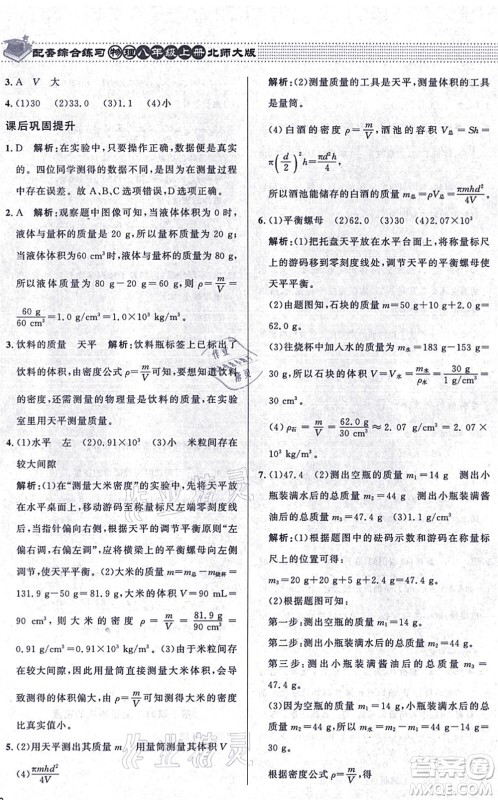 配套综合练习 物理 八年级上册 北师大版
3. A V 大
4. (1)30 (2)33 (3)1.1 (4)小
课后巩固提升
1. D 解析:在实验中,只要有测量就会存在误差。四位同学测量的数据都正确,因为测量过程中存在误差。故 A、B、C 选项错误,D 正确。
2. A 解析:观察题中图像可知,当液体体积为 0 时,液体与量杯的质量为 20 g,所以量杯的质量为 20 g,当液体体积为 60 cm³时,液体与量杯的质量为 80 g,所以液体的质量为 80 g-20 g=60 g,所以液体的密度 ρ=m/V=
60 g/60 cm³=1.0 g/cm³=1.0×10³ kg/m³。
3. 饮料的质量 天平 解析:饮料瓶标签上已标出了饮料的体积,由密度公式 ρ=m/V可知,要想知道饮料的密度,还需测量的物理量是饮料的质量,在实验室里用天平测量质量。
4. (1)水平 左 (2)0.91×10³ (3)小 米粒间存在较大间隙
解析:(1)在“测量大米密度”的实验中,将天平放在水平桌面上,移动游码至标尺左端零刻度线处,根据天平的调节平衡原则“左偏右调,右偏左调”,应将横梁上的平衡螺母向左调节,使天平平衡。
(2)大米的质量 m=m总-m烧杯=
131.9 g-50 g=81.9 g,大米的体积 V=90 mL=
90 cm³,则大米的密度 ρ=m/V=81.9 g/90 cm³=
0.91 g/cm³=0.91×10³ kg/m³。(3)由于米粒间存在较大间隙,因此用量筒直接测量大米体积,会导致所测的体积偏大,由 ρ=m/V可知,所测密度比真实值小。
5. (2)用天平测出其质量 m 用量筒测量其体积 V
(4)πmhd²/4V
解析:(2)测量质量的工具是天平,测量体积的工具是量筒。
(4)白酒的密度 ρ=m/V,酒池的容积 V总=Sh=
π(d/2)²h=πd²h/4,
所以酒池能储存的白酒的质量 m总=ρV总=πmhd²/4V
6. (1)平衡螺母 (2)62.0 (3)30 (4)2.07×10³
解析:(1)把托盘天平放在水平台面上,将称量标尺上的游码移到零刻度线处,调节天平的平衡螺母使天平平衡。
(2)由题图知,石块的质量 m=50 g+10 g+2 g=
62.0 g。
(3)往烧杯中加入水的质量 m水=183 g-153 g=
30 g,所以石块的体积 V=V水=m水/ρ水=30 g/1 g/cm³=
30 cm³。
(4)ρ石=m/V=62.0 g/30 cm³≈2.07 g/cm³=2.07×
10³ kg/m³。
7. (1)47.4 (2)测出空瓶的质量 m₁=14 g 测出小瓶装满水后的总质量 m₂=44 g 测出小瓶装满酱油后的总质量 m₃=47.4 g
解析:(1)根据题图中的砝码示数和游码在称量标尺上的示数可得
m₃=20 g+20 g+5 g+2.4 g=47.4 g。
(2)根据题图可得
第一步:测出空瓶的质量 m₁=14 g。
第二步:测出小瓶装满水后的总质量 m₂=44 g。
第三步:测出小瓶装满酱油后的总质量 m₃=
47.4 g。
根据密度公式 ρ=m/V得